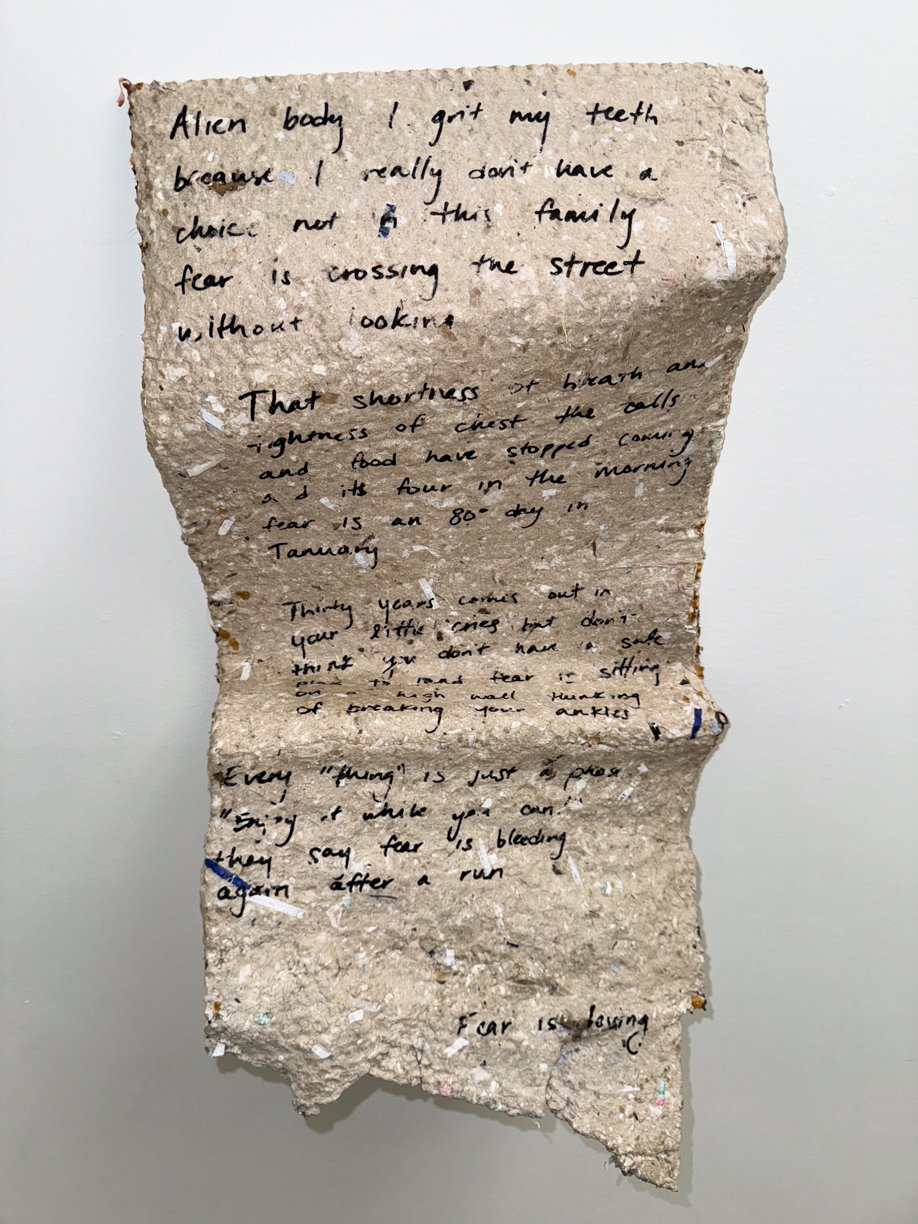 Alien body I grit my teeth
because I really don't have a
choice not in this family
fear is crossing the street
without looking
That shortness of breath and
tightness of chest the calls
and food have stopped coming
and its four in the morning
fear is an 80° day in
January
Thirty years comes out in
your little cries but don't
think you don't have a safe
place to land fear is sitting
on a high wall thinking
of breaking your ankles
Every "thing" is just a phase
"Enjoy it while you can!"
they say fear is bleeding
again after a run
Fear is loving